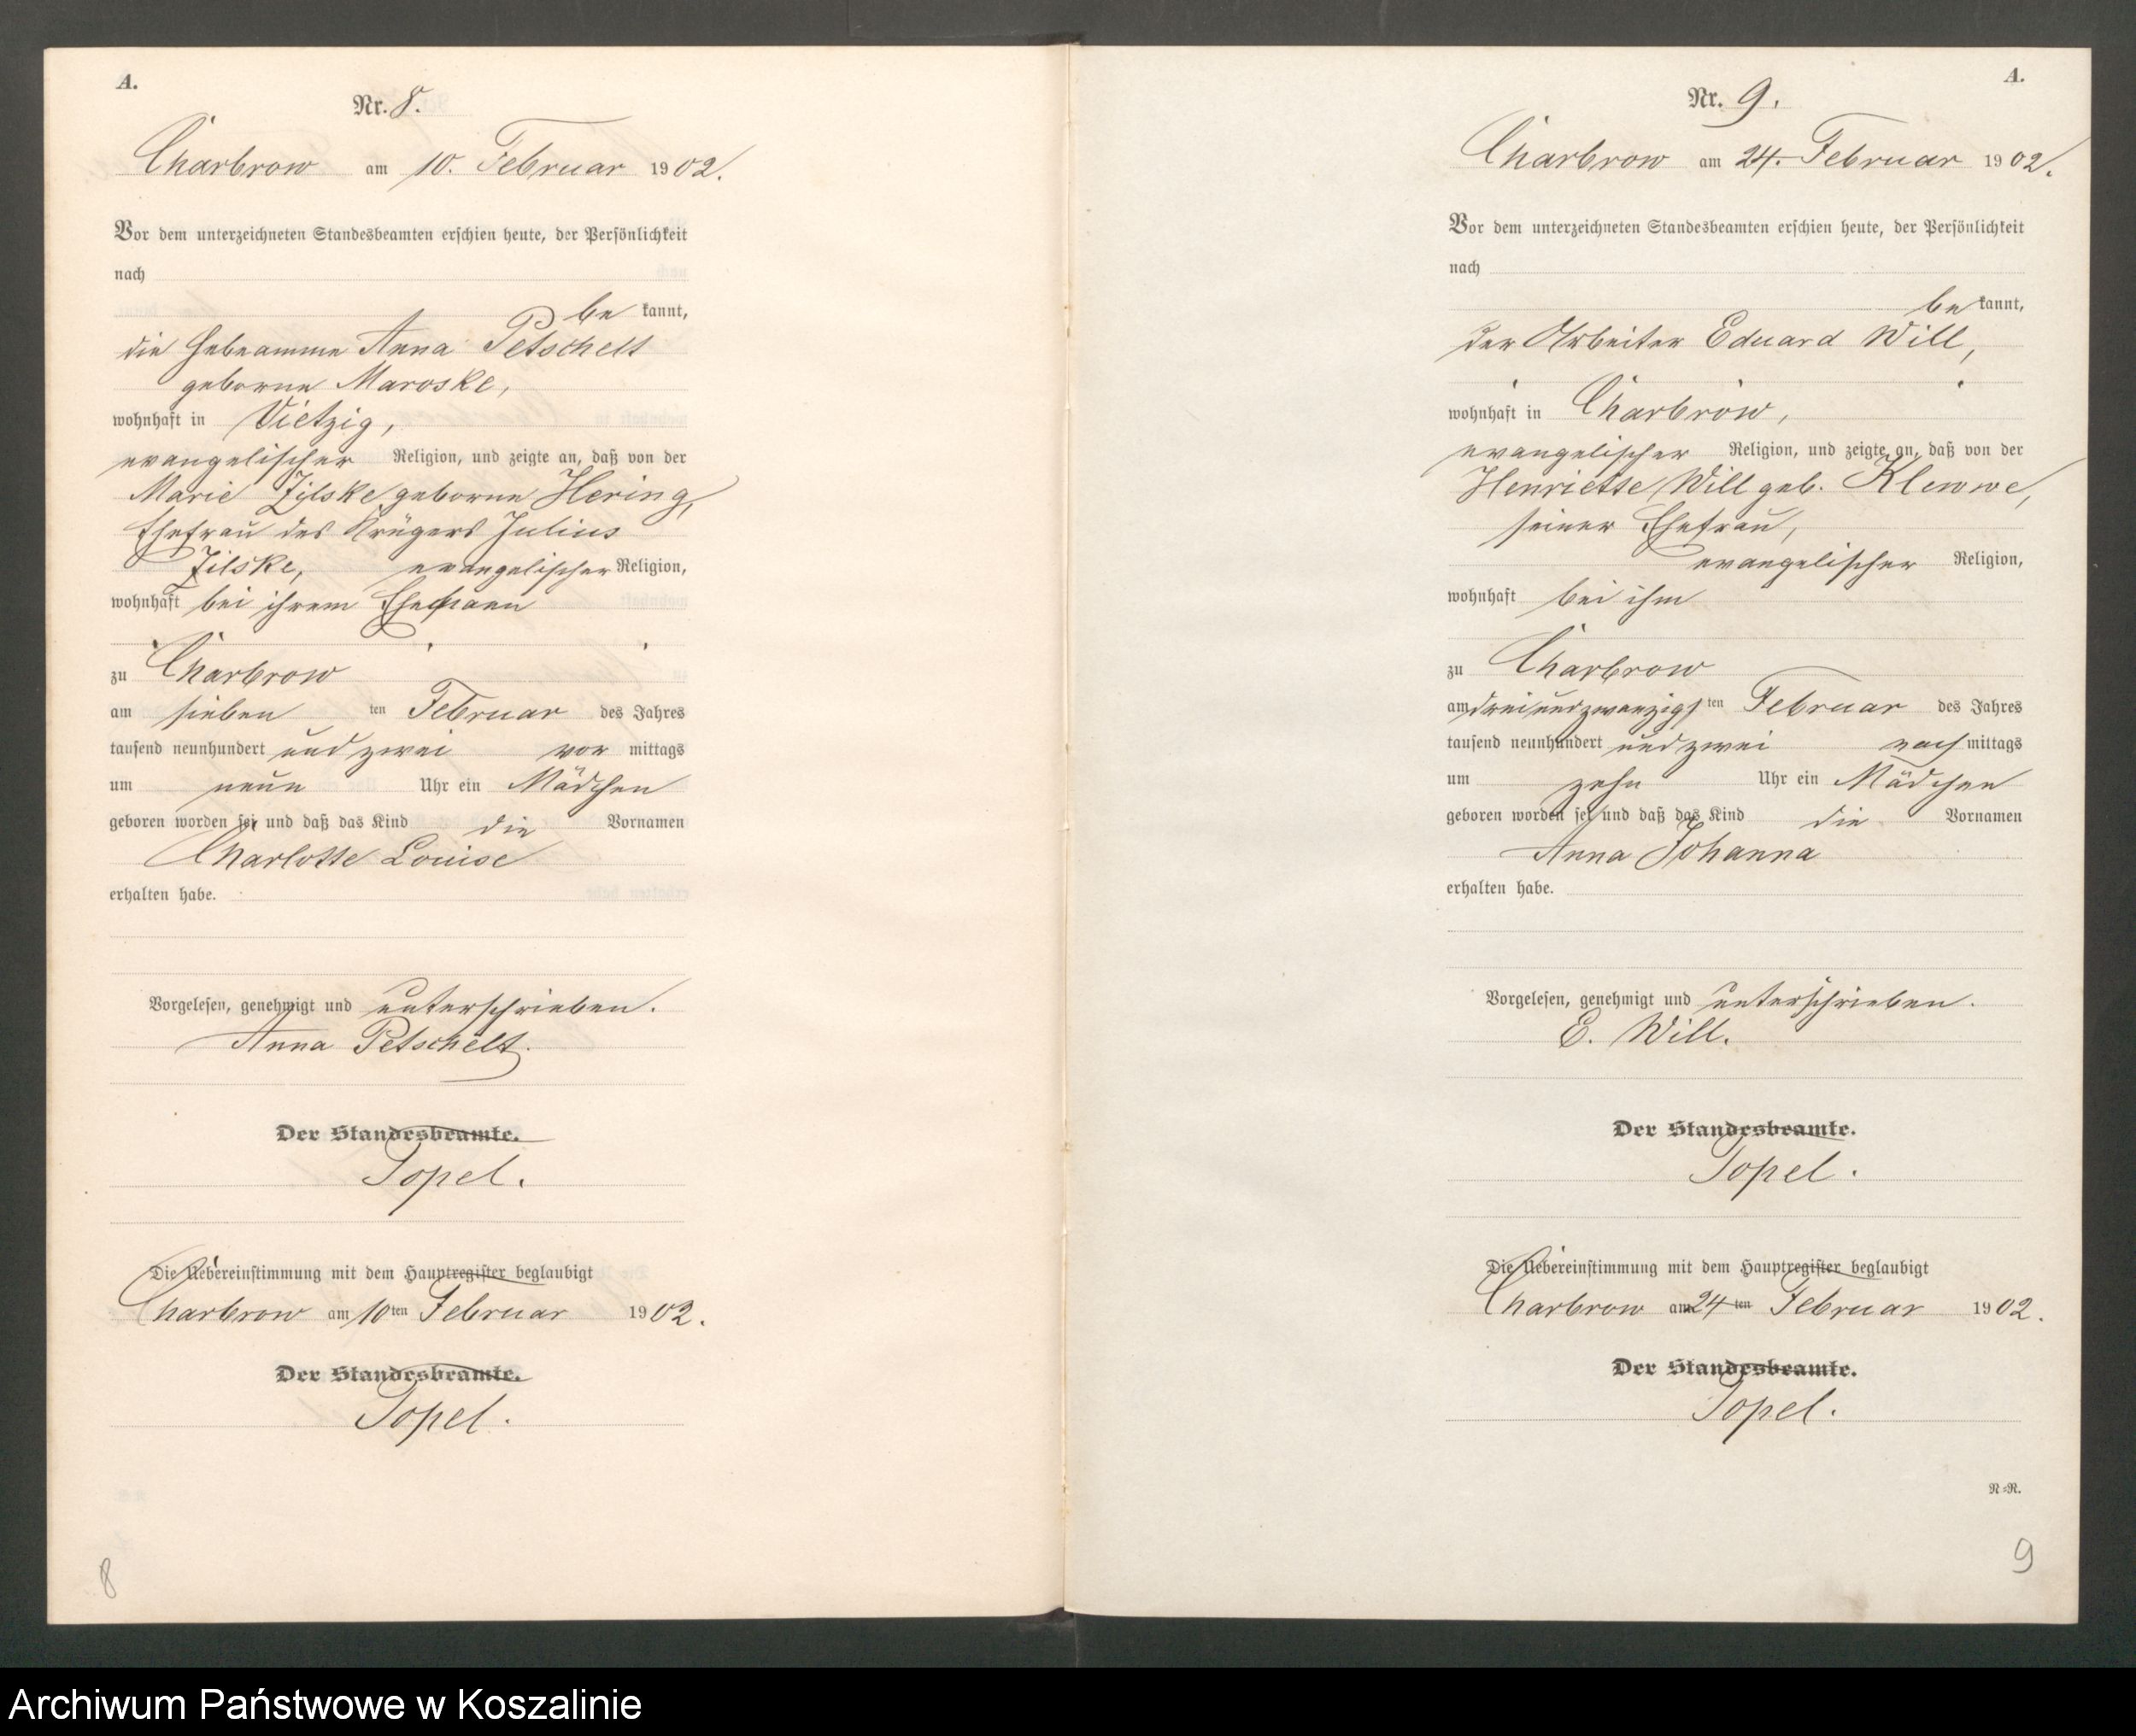 A.
Nr. 8.
Charbrow am 10. Februar 1902.
Vor dem unterzeichneten Standesbeamten erschien heute, der Persönlichkeit
nach
be kannt,
die Hebeamme Anna Petschelt
geborne Maroske,
wohnhaft in Vietzig,
evangelischer Religion, und zeigte an, daß von der
Marie Zilske geborne Hering,
Ehefrau des Krügers Julius
Zilske, evangelischer Religion,
wohnhaft bei ihrem Ehemann
zu Charbrow
am sieben ten Februar des Jahres
tausend neunhundert und zwei vor mittags
um neun Uhr ein Mädchen
geboren worden sei und daß das Kind die Vornamen
Charlotte Louise
erhalten habe.
Vorgelesen, genehmigt und unterschrieben.
Anna Petschelt.
Der Standesbeamte.
Topel.
Die Uebereinstimmung mit dem Hauptregister beglaubigt
Charbrow am 10ten Februar 1902.
Der Standesbeamte.
Topel.
8
A.
Nr. 9.
Charbrow am 24. Februar 1902.
Vor dem unterzeichneten Standesbeamten erschien heute, der Persönlichkeit
nach
be kannt,
der Arbeiter Eduard Will,
wohnhaft in Charbrow,
evangelischer Religion, und zeigte an, daß von der
Henriette Will geb. Klewwe,
seiner Ehefrau,
evangelischer Religion,
wohnhaft bei ihm
zu Charbrow
am dreiundzwanzigs ten Februar des Jahres
tausend neunhundert und zwei nach mittags
um zehn Uhr ein Mädchen
geboren worden sei und daß das Kind die Vornamen
Anna Johanna
erhalten habe.
Vorgelesen, genehmigt und unterschrieben.
E. Will.
Der Standesbeamte.
Topel.
Die Uebereinstimmung mit dem Hauptregister beglaubigt
Charbrow am 24 ten Februar 1902.
Der Standesbeamte.
Topel.
N=R.
9
Archiwum Państwowe w Koszalinie